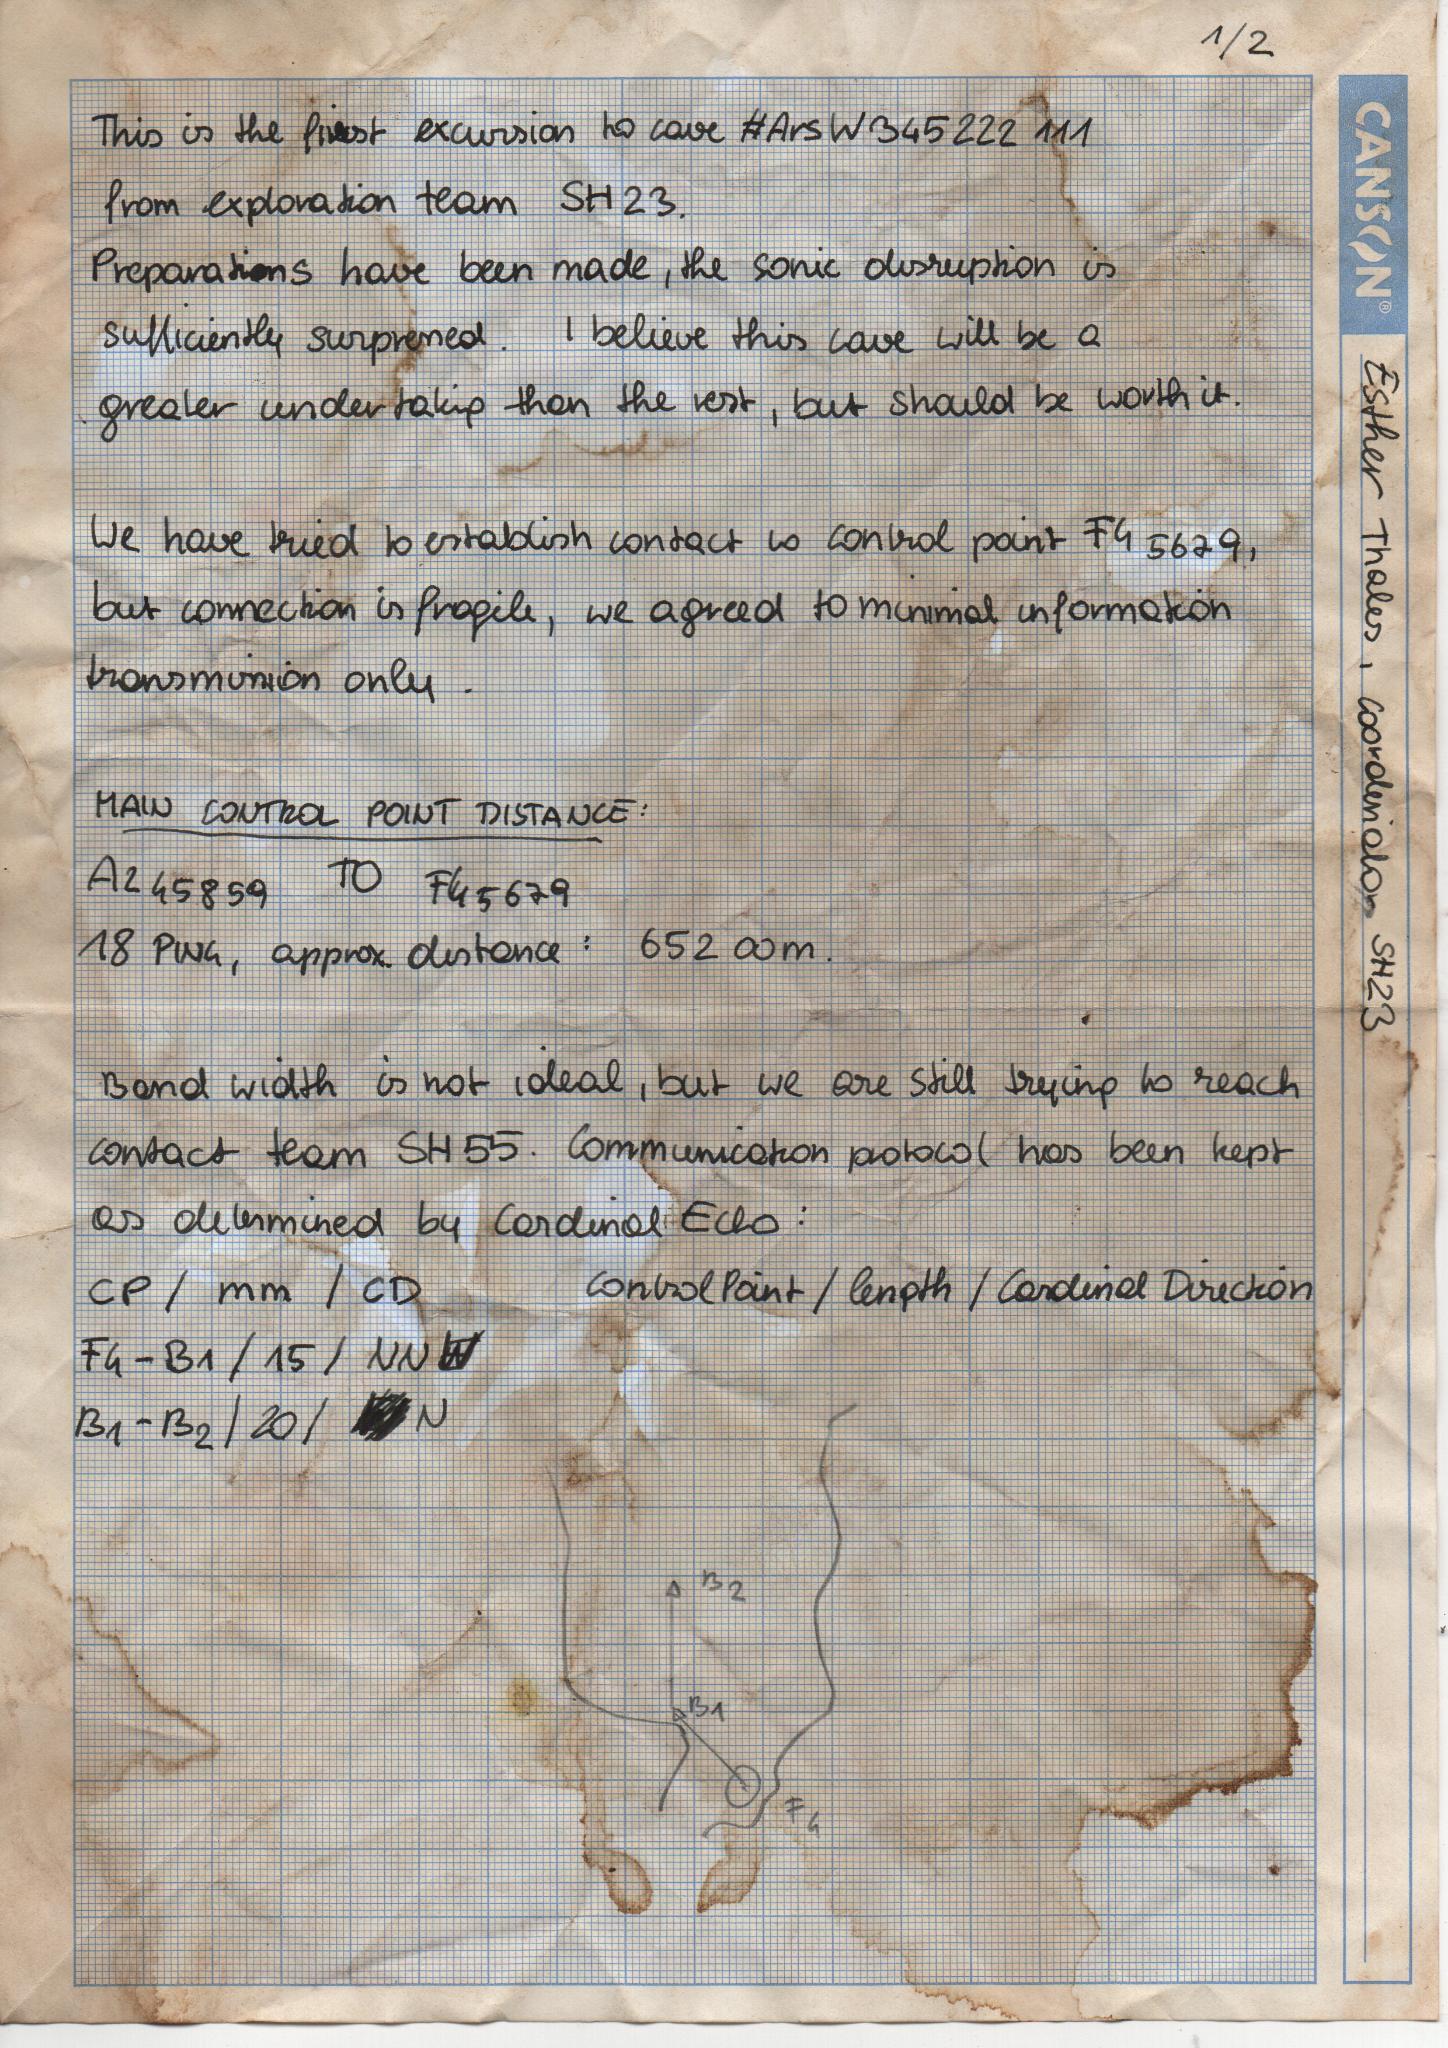 1/2
This is the first excursion to cave #ArsW345222111
from exploration team SH23.
Preparations have been made, the sonic disruption is
sufficiently surpressed. I believe this cave will be a
greater undertaking than the rest, but should be worth it.
We have tried to establish contact to control point F45679,
but connection is fragile, we agreed to minimal information
transmission only.
MAIN CONTROL POINT DISTANCE:
A245859 TO F45679
18 PING, approx. distance: 65200m.
Band width is not ideal, but we are still trying to reach
contact team SH55. Communication protocol has been kept
as determined by Cardinal Echo:
CP / mm / CD Control Point / length / Cardinal Direction
F4-B1 / 15 / NNW
B1-B2 / 20 / N
B2
B1
F4
CANSON®
Esther Thales, Coordinator SH23